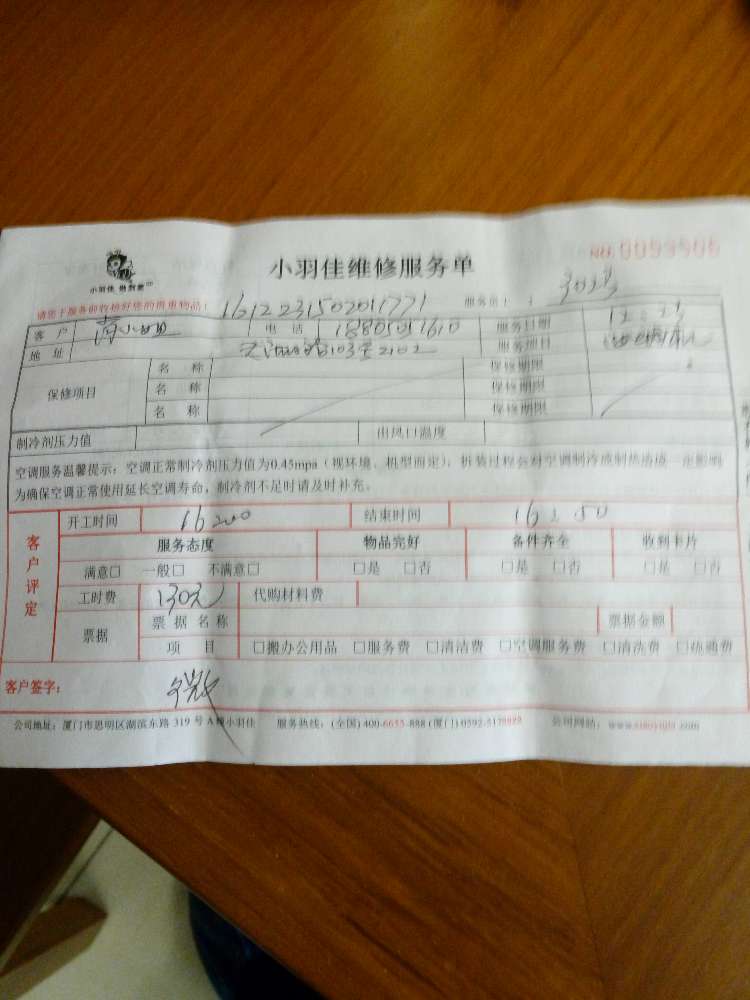 小羽佳维修服务单
NO.0093506
小羽佳
请您于服务前收拾好您的贵重物品: 161223150201771 服务员:
客 户 小姐 电 话 服务日期 12.23
地 址 服务项目
保修项目
名 称 保修期限
名 称 保修期限
名 称 保修期限
制冷剂压力值 出风口温度
空调服务温馨提示:空调正常制冷剂压力值为0.45mpa(视环境、机型而定),拆装过程会对空调制冷或制热造成一定影响
为确保空调正常使用延长空调寿命,制冷剂不足时请及时补充。
客户评定
开工时间 16:00 结束时间 16:50
服务态度 物品完好 备件齐全 收到卡片
满意□ 一般□ 不满意□ □是 □否 □是 □否 □是 □否
工时费 130元 代购材料费
票据 票据名称 票据金额
项 目 □搬办公用品 □服务费 □清洁费 □空调服务费 □清洗费 □疏通费
客户签字:
公司地址:厦门市思明区湖滨东路 319 号 A 小羽佳 服务热线:(全国) 400-6655-888 (厦门) 0592-5178888 公司网站:www.xiaoyujia.com